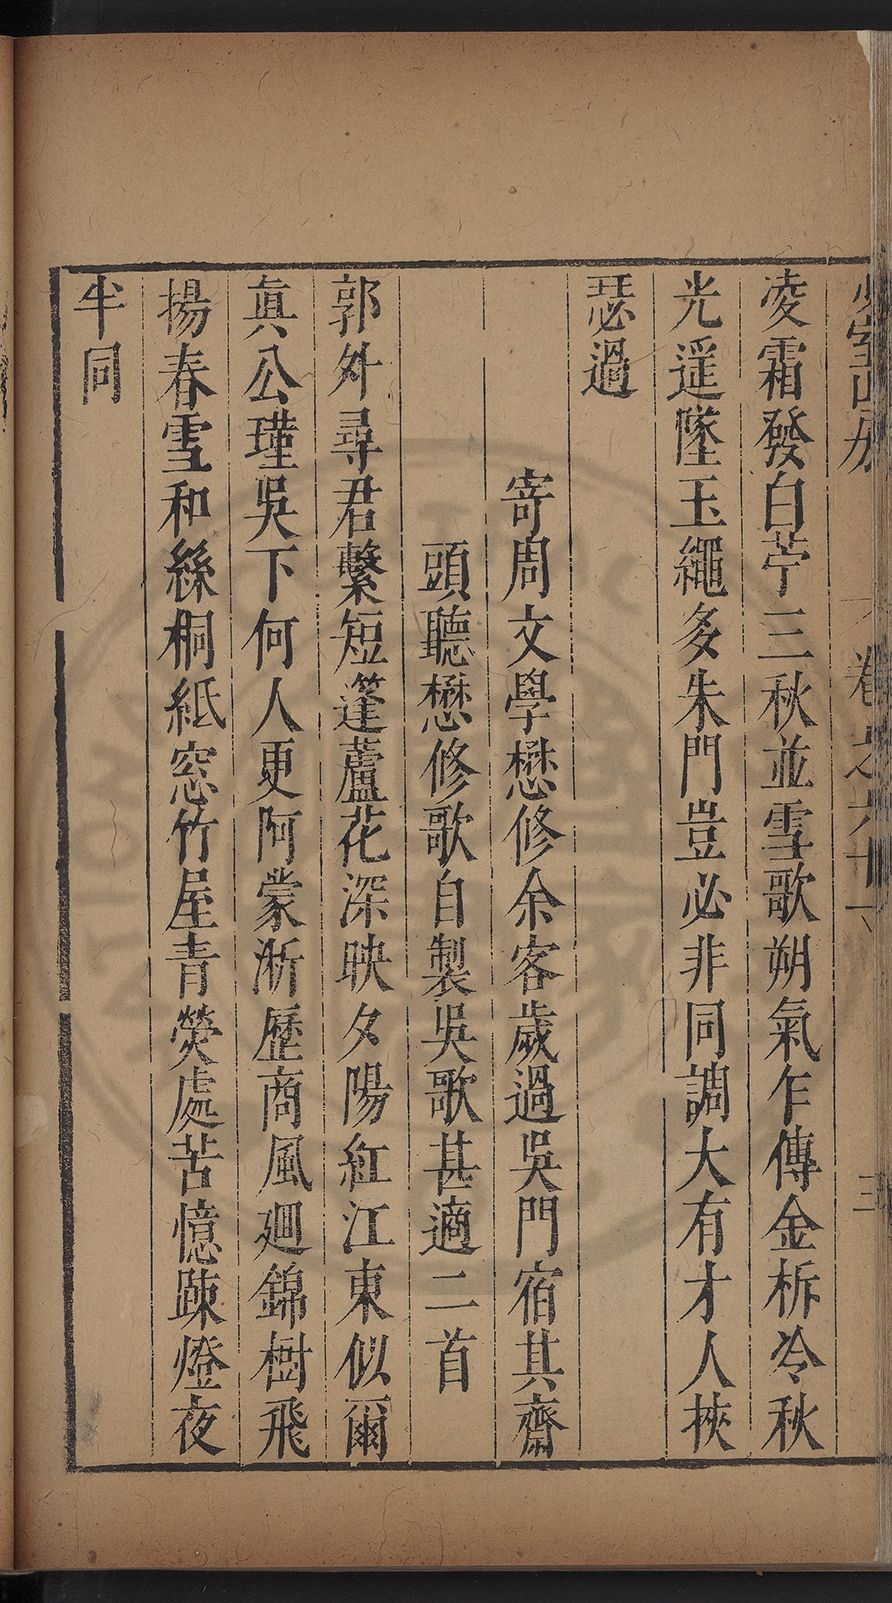 凌霜發白苧三秋並雪歌朔氣乍傳金柝冷秋
光遥墜玉繩多朱門豈必非同調大有才人挾
瑟過
寄周文學懋修余客歲過吳門宿其齋
頭聽懋修歌自製吳歌甚適二首
郭外尋君繫短篷蘆花深映夕陽紅江東似爾
真公瑾吳下何人更阿蒙淅歷商風廻錦樹飛
揚春雪和絲桐紙窓竹屋青熒處苦憶踈燈夜
半同